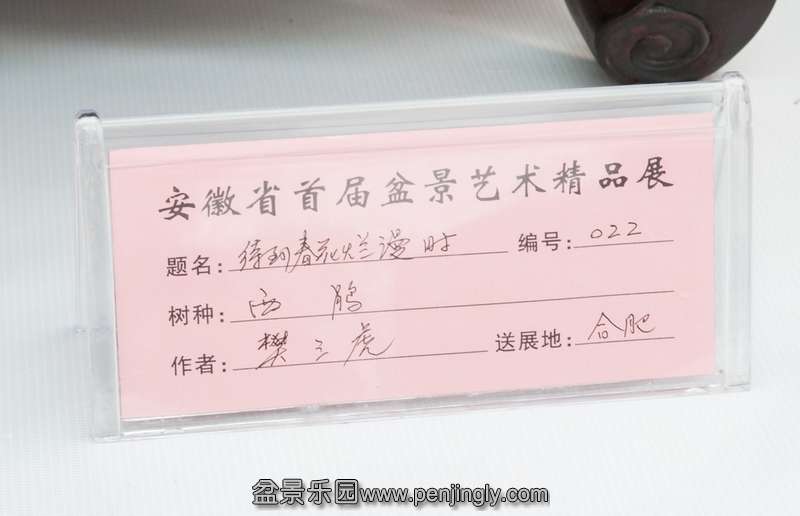 安徽省首届盆景艺术精品展
题名：待到春花烂漫时 编号：022
树种：西鹃
作者：樊三虎 送展地：合肥
盆景乐园www.penjingly.com